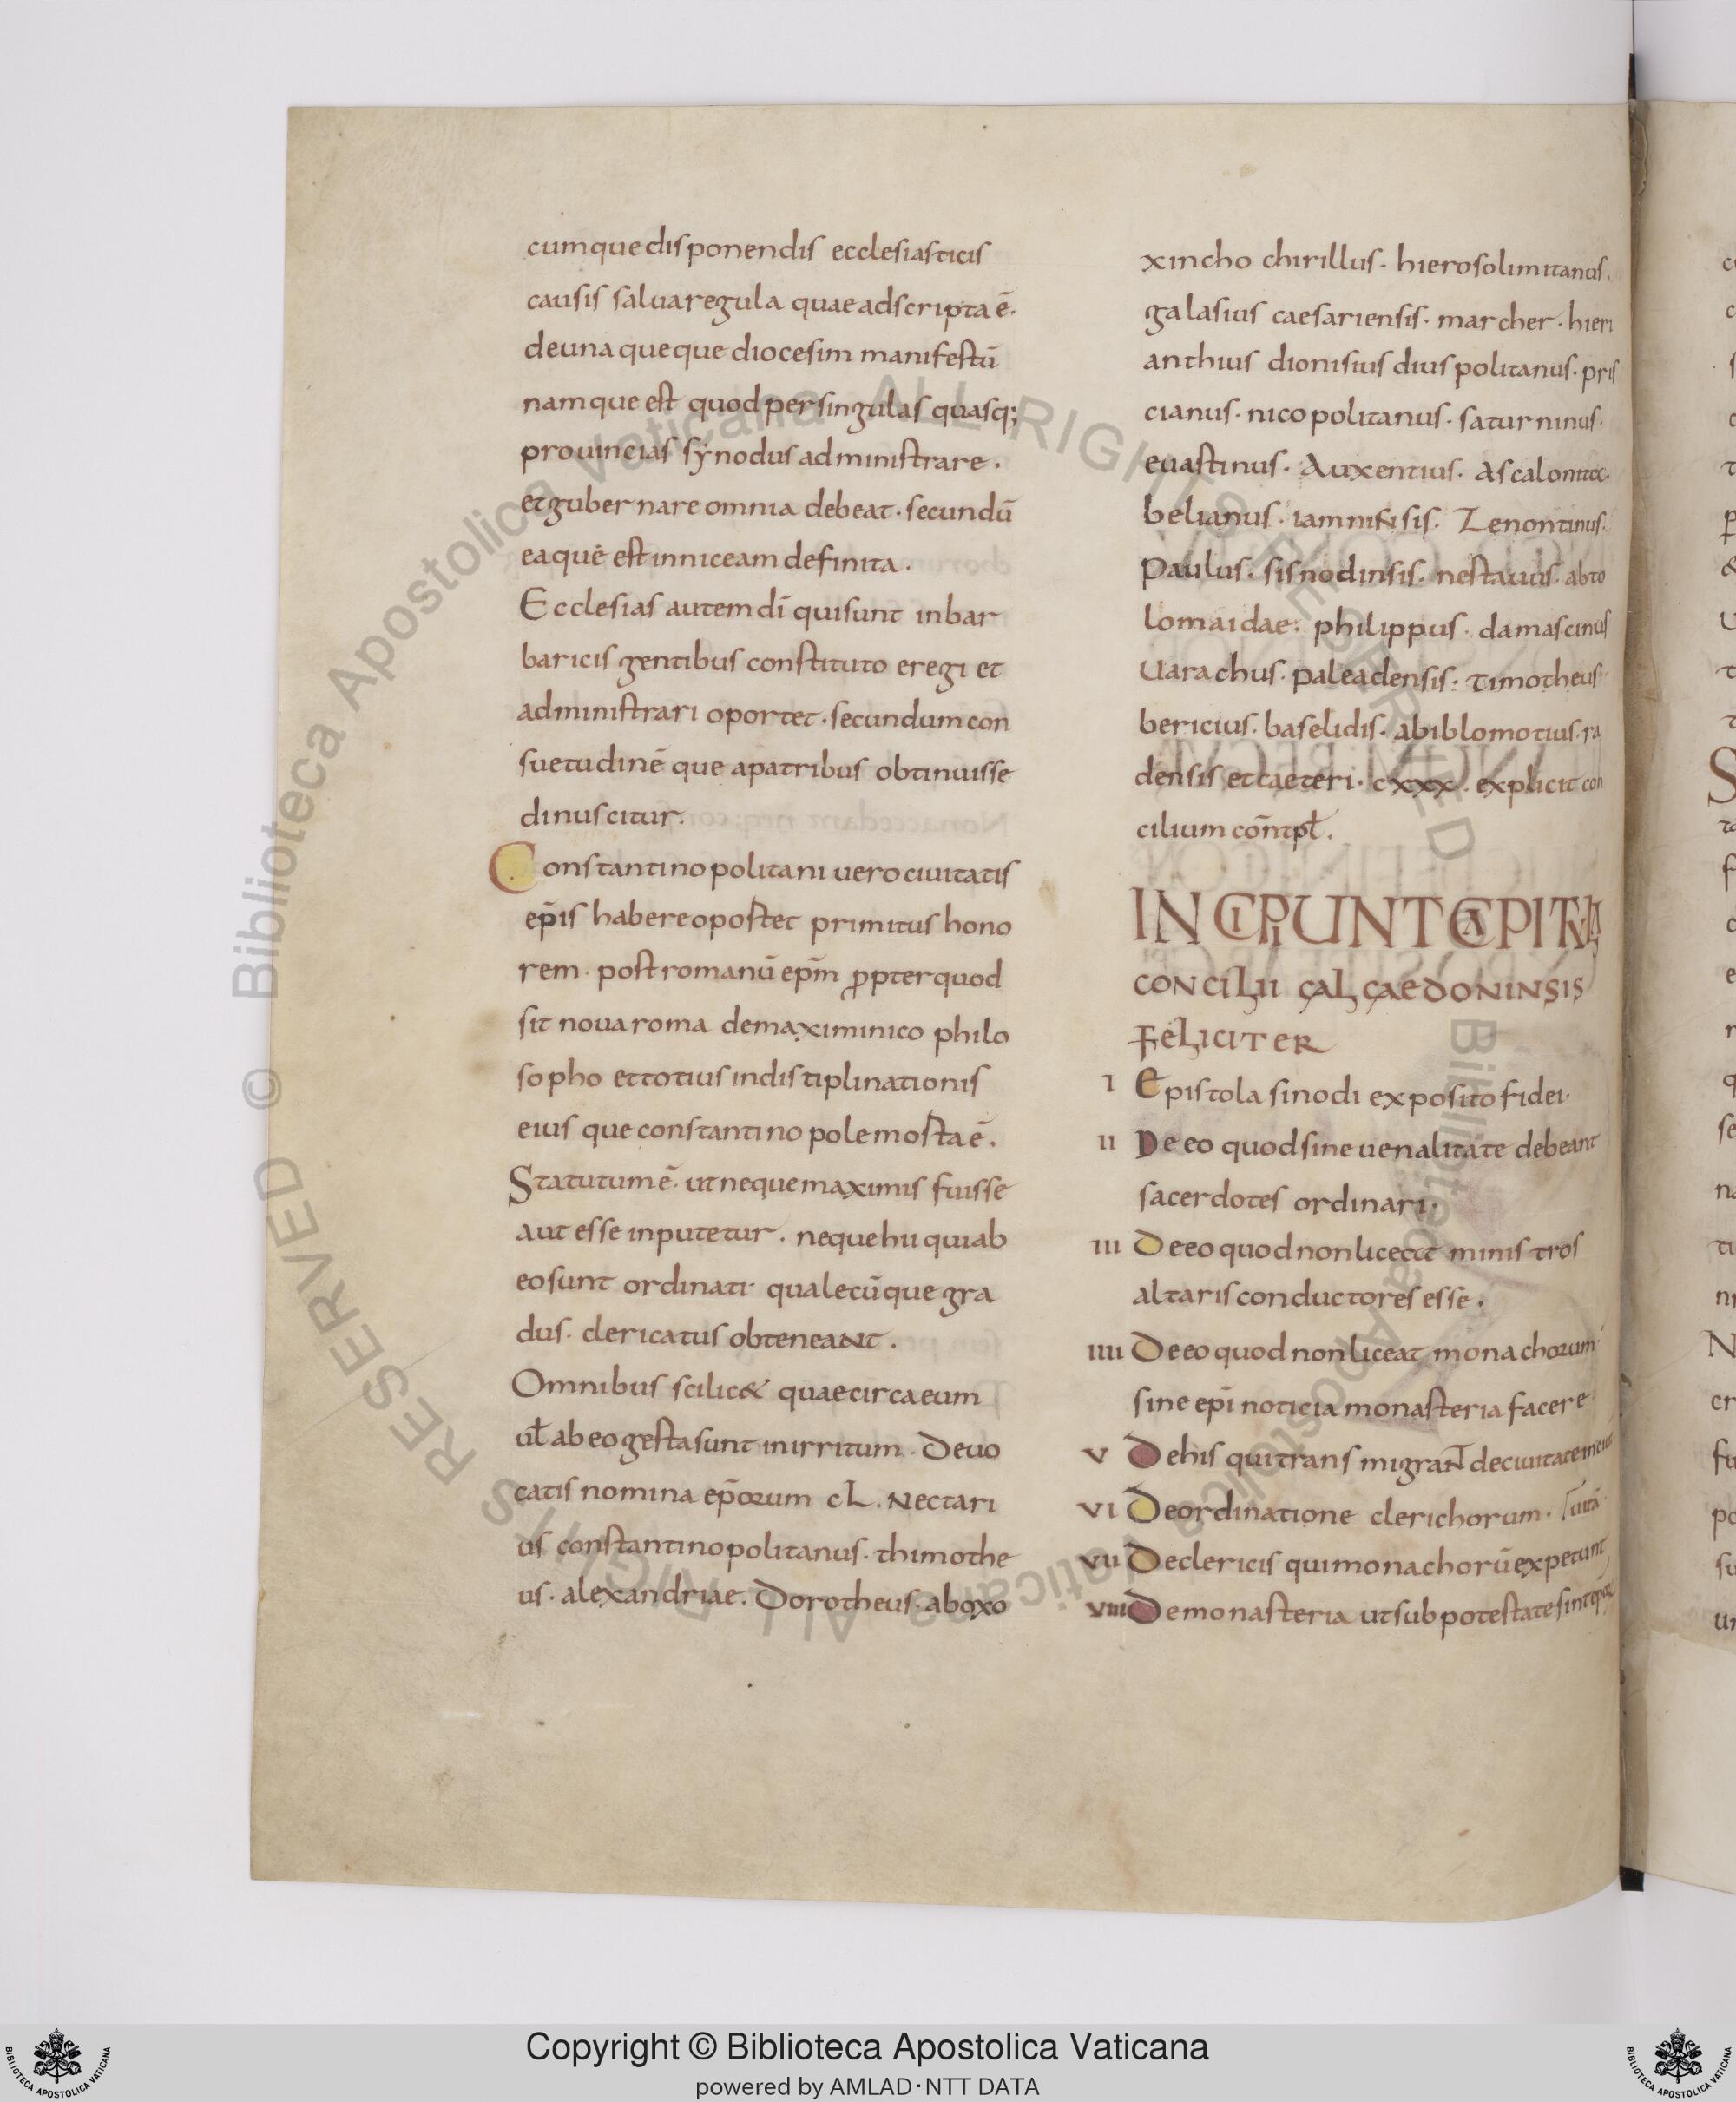 cumque disponendis ecclesiasticis
causis salua regula quae adscripta ē·
de una queque diocesim manifestū
namque est quod per singulas quasq;
prouincias synodus administrare .
et gubernare omnia debeat · secundū
ea quę est in niceam definita .
Ecclesias autem dī qui sunt in bar
baricis gentibus constituto eregi et
administrari oportet · secundum con
suetudinē que apatribus obtinuisse
dinuscitur .
Constantinopolitani uero ciuitatis
ep̄is habere opostet primitus hono
rem · post romanū ep̄m ꝓpter quod
sit noua roma de maximinico philo
sopho et totius indistiplinationis
eius que constantinopolem osta ē .
Statutum ē · ut neque maximis fuisse
aut esse inputetur . neque hii qui ab
eo sunt ordinati · qualecūque gra
dus · clericatus obteneant .
Omnibus scilic& quae circa eum
ul̄ ab eo gesta sunt in irritum . Deuo
catis nomina ep̄orum cL . Nectari
us constantinopolitanus · thimothe
us · alexandriae . Dorotheus · aboxo
xincho chirillus · hierosolimitanus .
galasius caesariensis · marcher · hieri
anthius dionisius diuspolitanus · pris
cianus · nicopolitanus · saturninus ·
euastinus · Auxentius · Ascalonitae ·
belianus · iamnisis · Zenontinus ·
Paulus · sisnodinsis · nestauus · abto
lomaidae : philippus · damascinus
Uarachus · paleadensis · Timotheus
bericius · baselidis · abiblomotius · ra
densis et caeteri · cxxx . explicit con
cilium cōntpl̄ .
INCIPIUNT CAPITULA
CONCILII CALCAEDONINSIS
FELICITER
I Epistola sinodi exposito fidei ·
II De eo quod sine uenalitate debeant
sacerdotes ordinari ·
III De eo quod non liceat ministros
altaris conductores esse .
IIII De eo quod non liceat monachorum
sine ep̄i noticia monasteria facere
V De his qui transmigrant̄ de ciuitatem ciui
VI De ordinatione clerichorum . uitā
VII De clericis qui monachorū expetunt
VIII De monasteria ut sub potestate sint ep̄orum
Copyright © Biblioteca Apostolica Vaticana
powered by AMLAD·NTT DATA